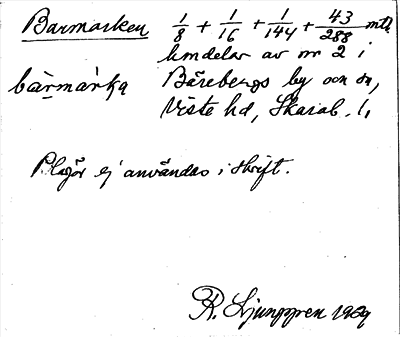 Barmarken 1/8 + 1/16 + 1/144 + 43/288 mtl
hmdelar av nr 2 i
bàrmàrka Bärebergs by och sn,
Viste hd, Skarab. l.
Plägar ej användas i skrift.
R. Ljunggren 1929